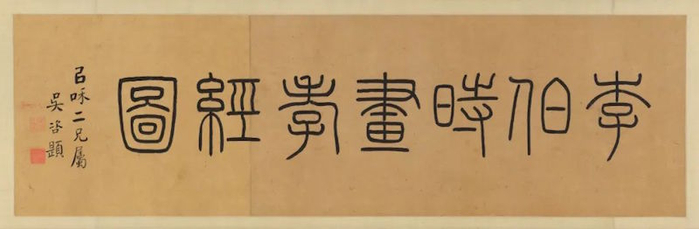 李伯時畫孝經圖
咊二兄屬
吳咨題